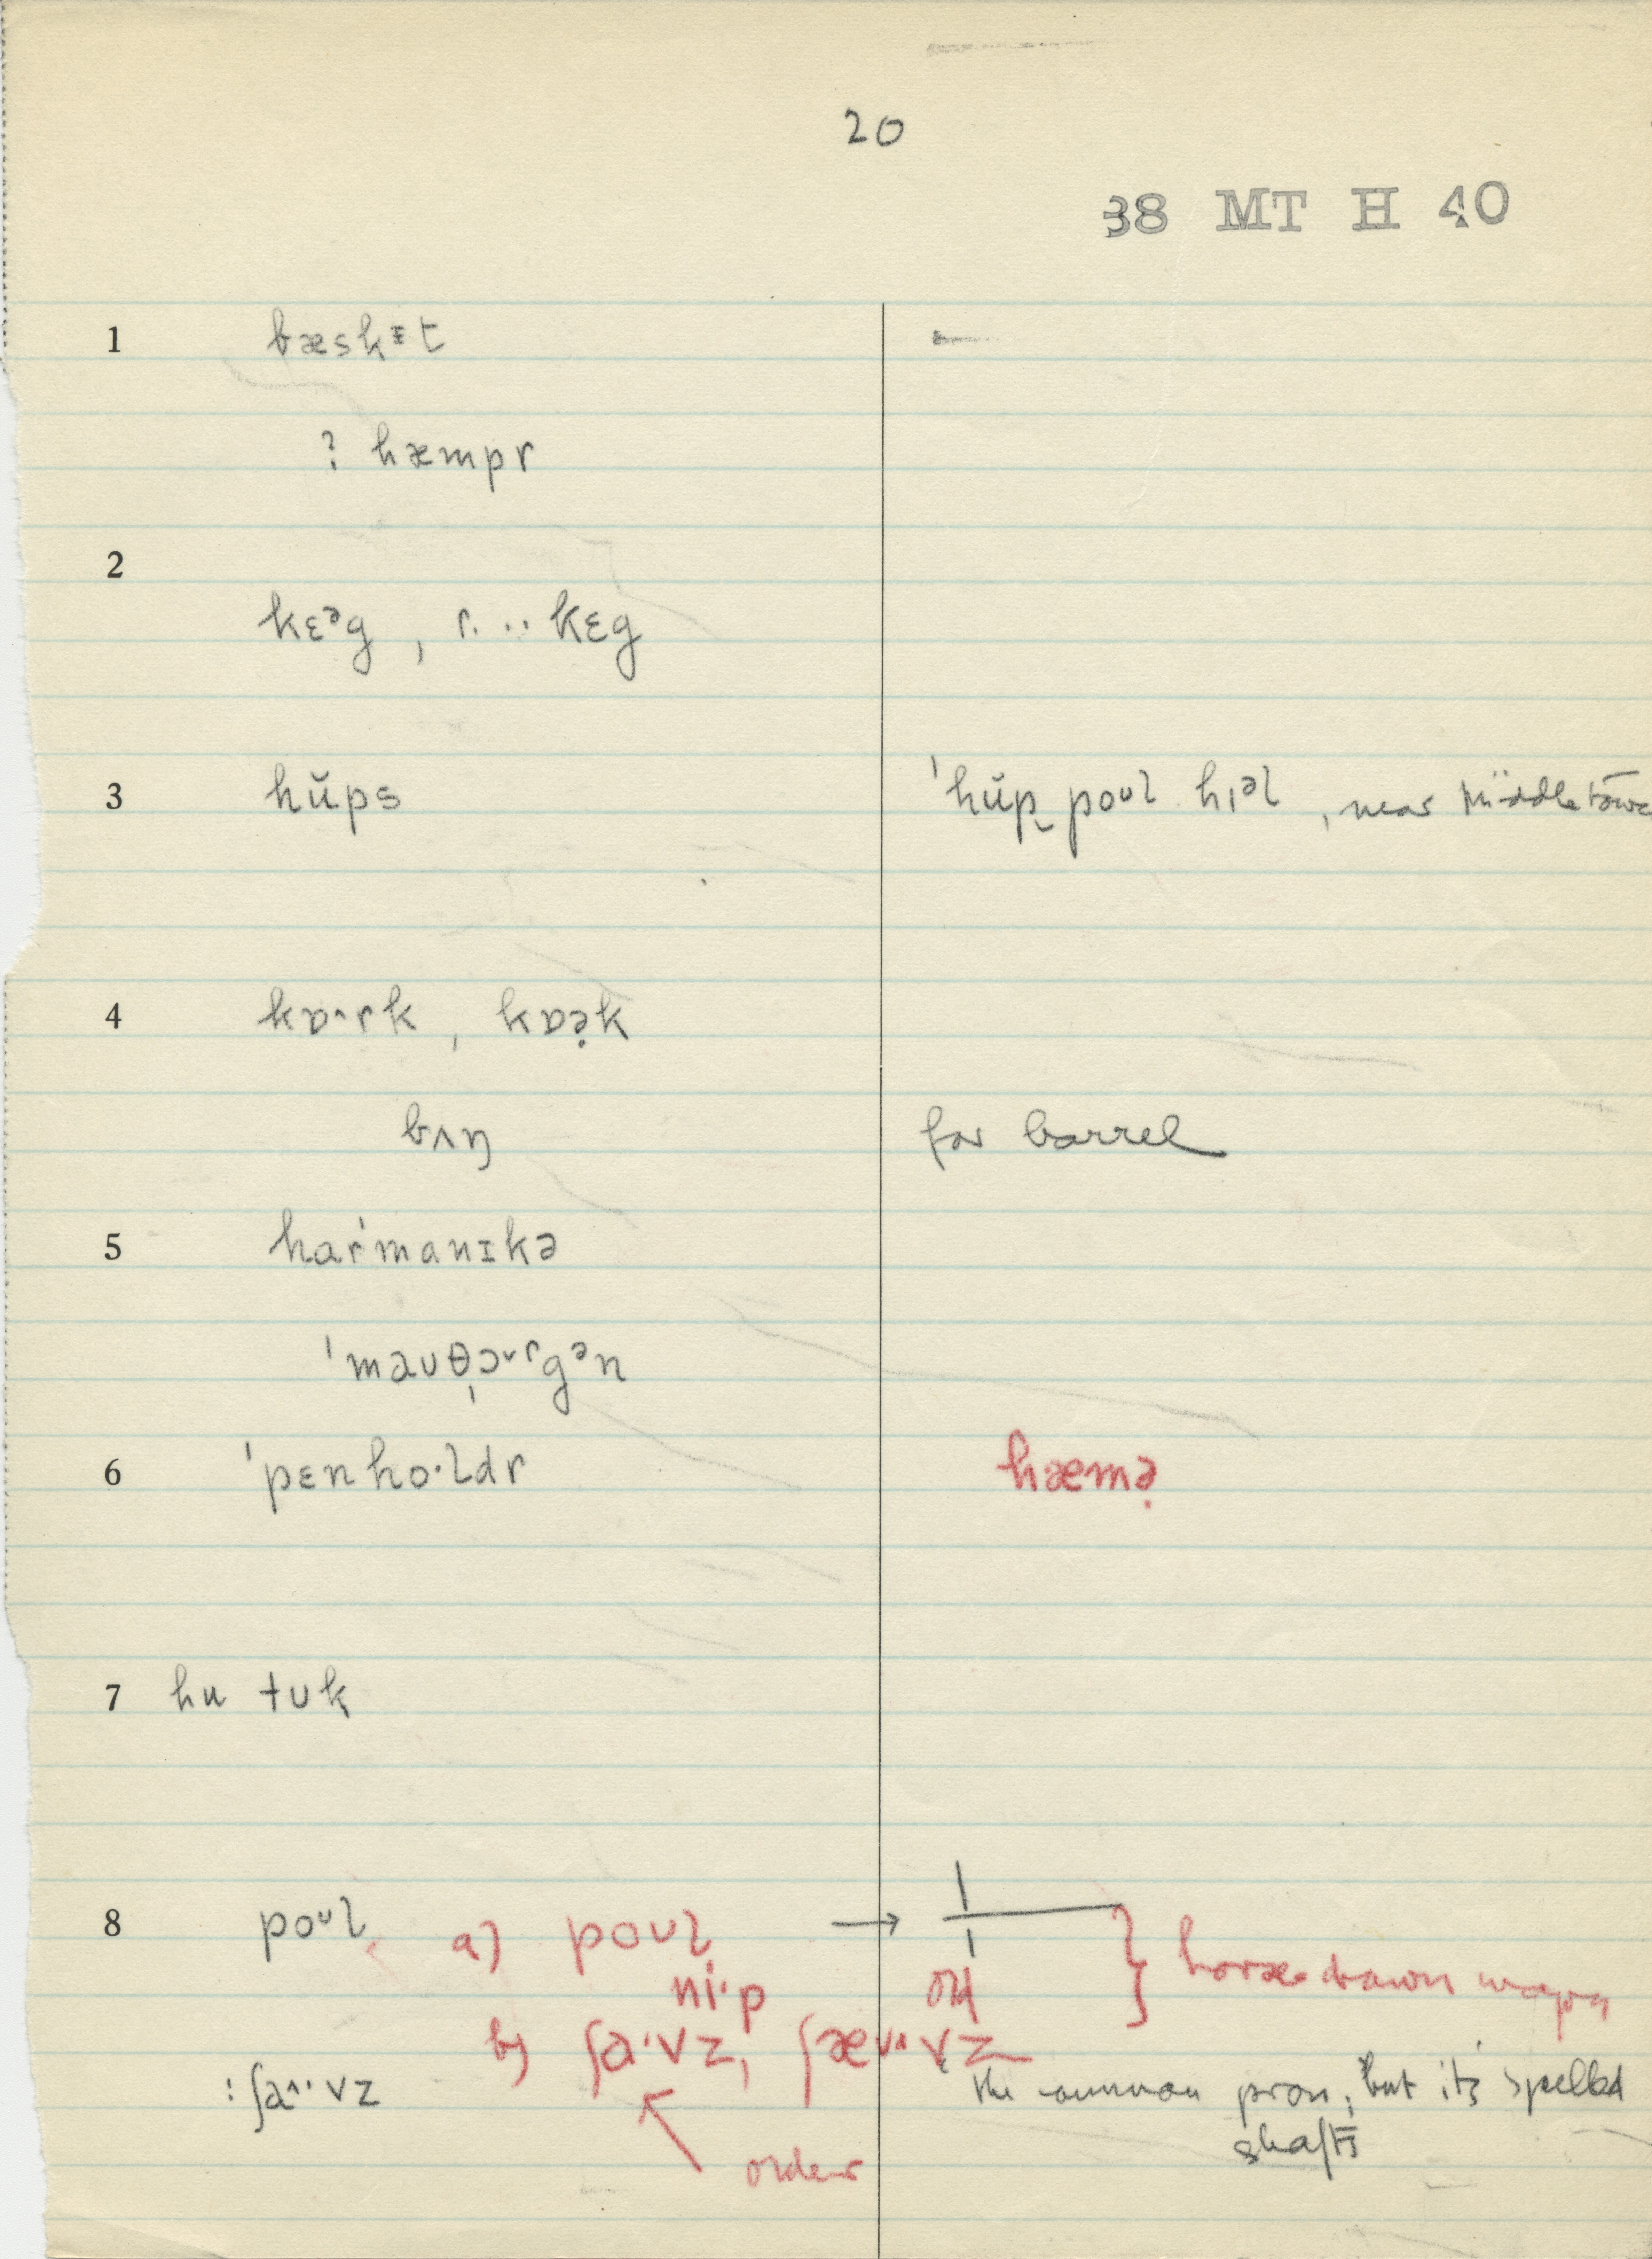 20
38 MT H 40
1 bæskᵻt
? hæmpr
2
kɛᵊg , r. .. kɛg
3 hŭps 'hŭp̬ poᶸl hɪᵊl , near Middletown
4 kɒ˄rk , kɒə̣k
bʌŋ for barrel
5 har'manɪkə
'maʊθ̩ɔ˅ʳgᵊn
6 'pɛnho·ldr hæmə̣
7 hu tʊk
8 poᶸl a) poʊl →
ni·p old } horse-drawn wagon
b) ʃa·vz, ʃæ˅˄·vz
: ʃa˄··vz the common pron, but it's spelled
shafts
older